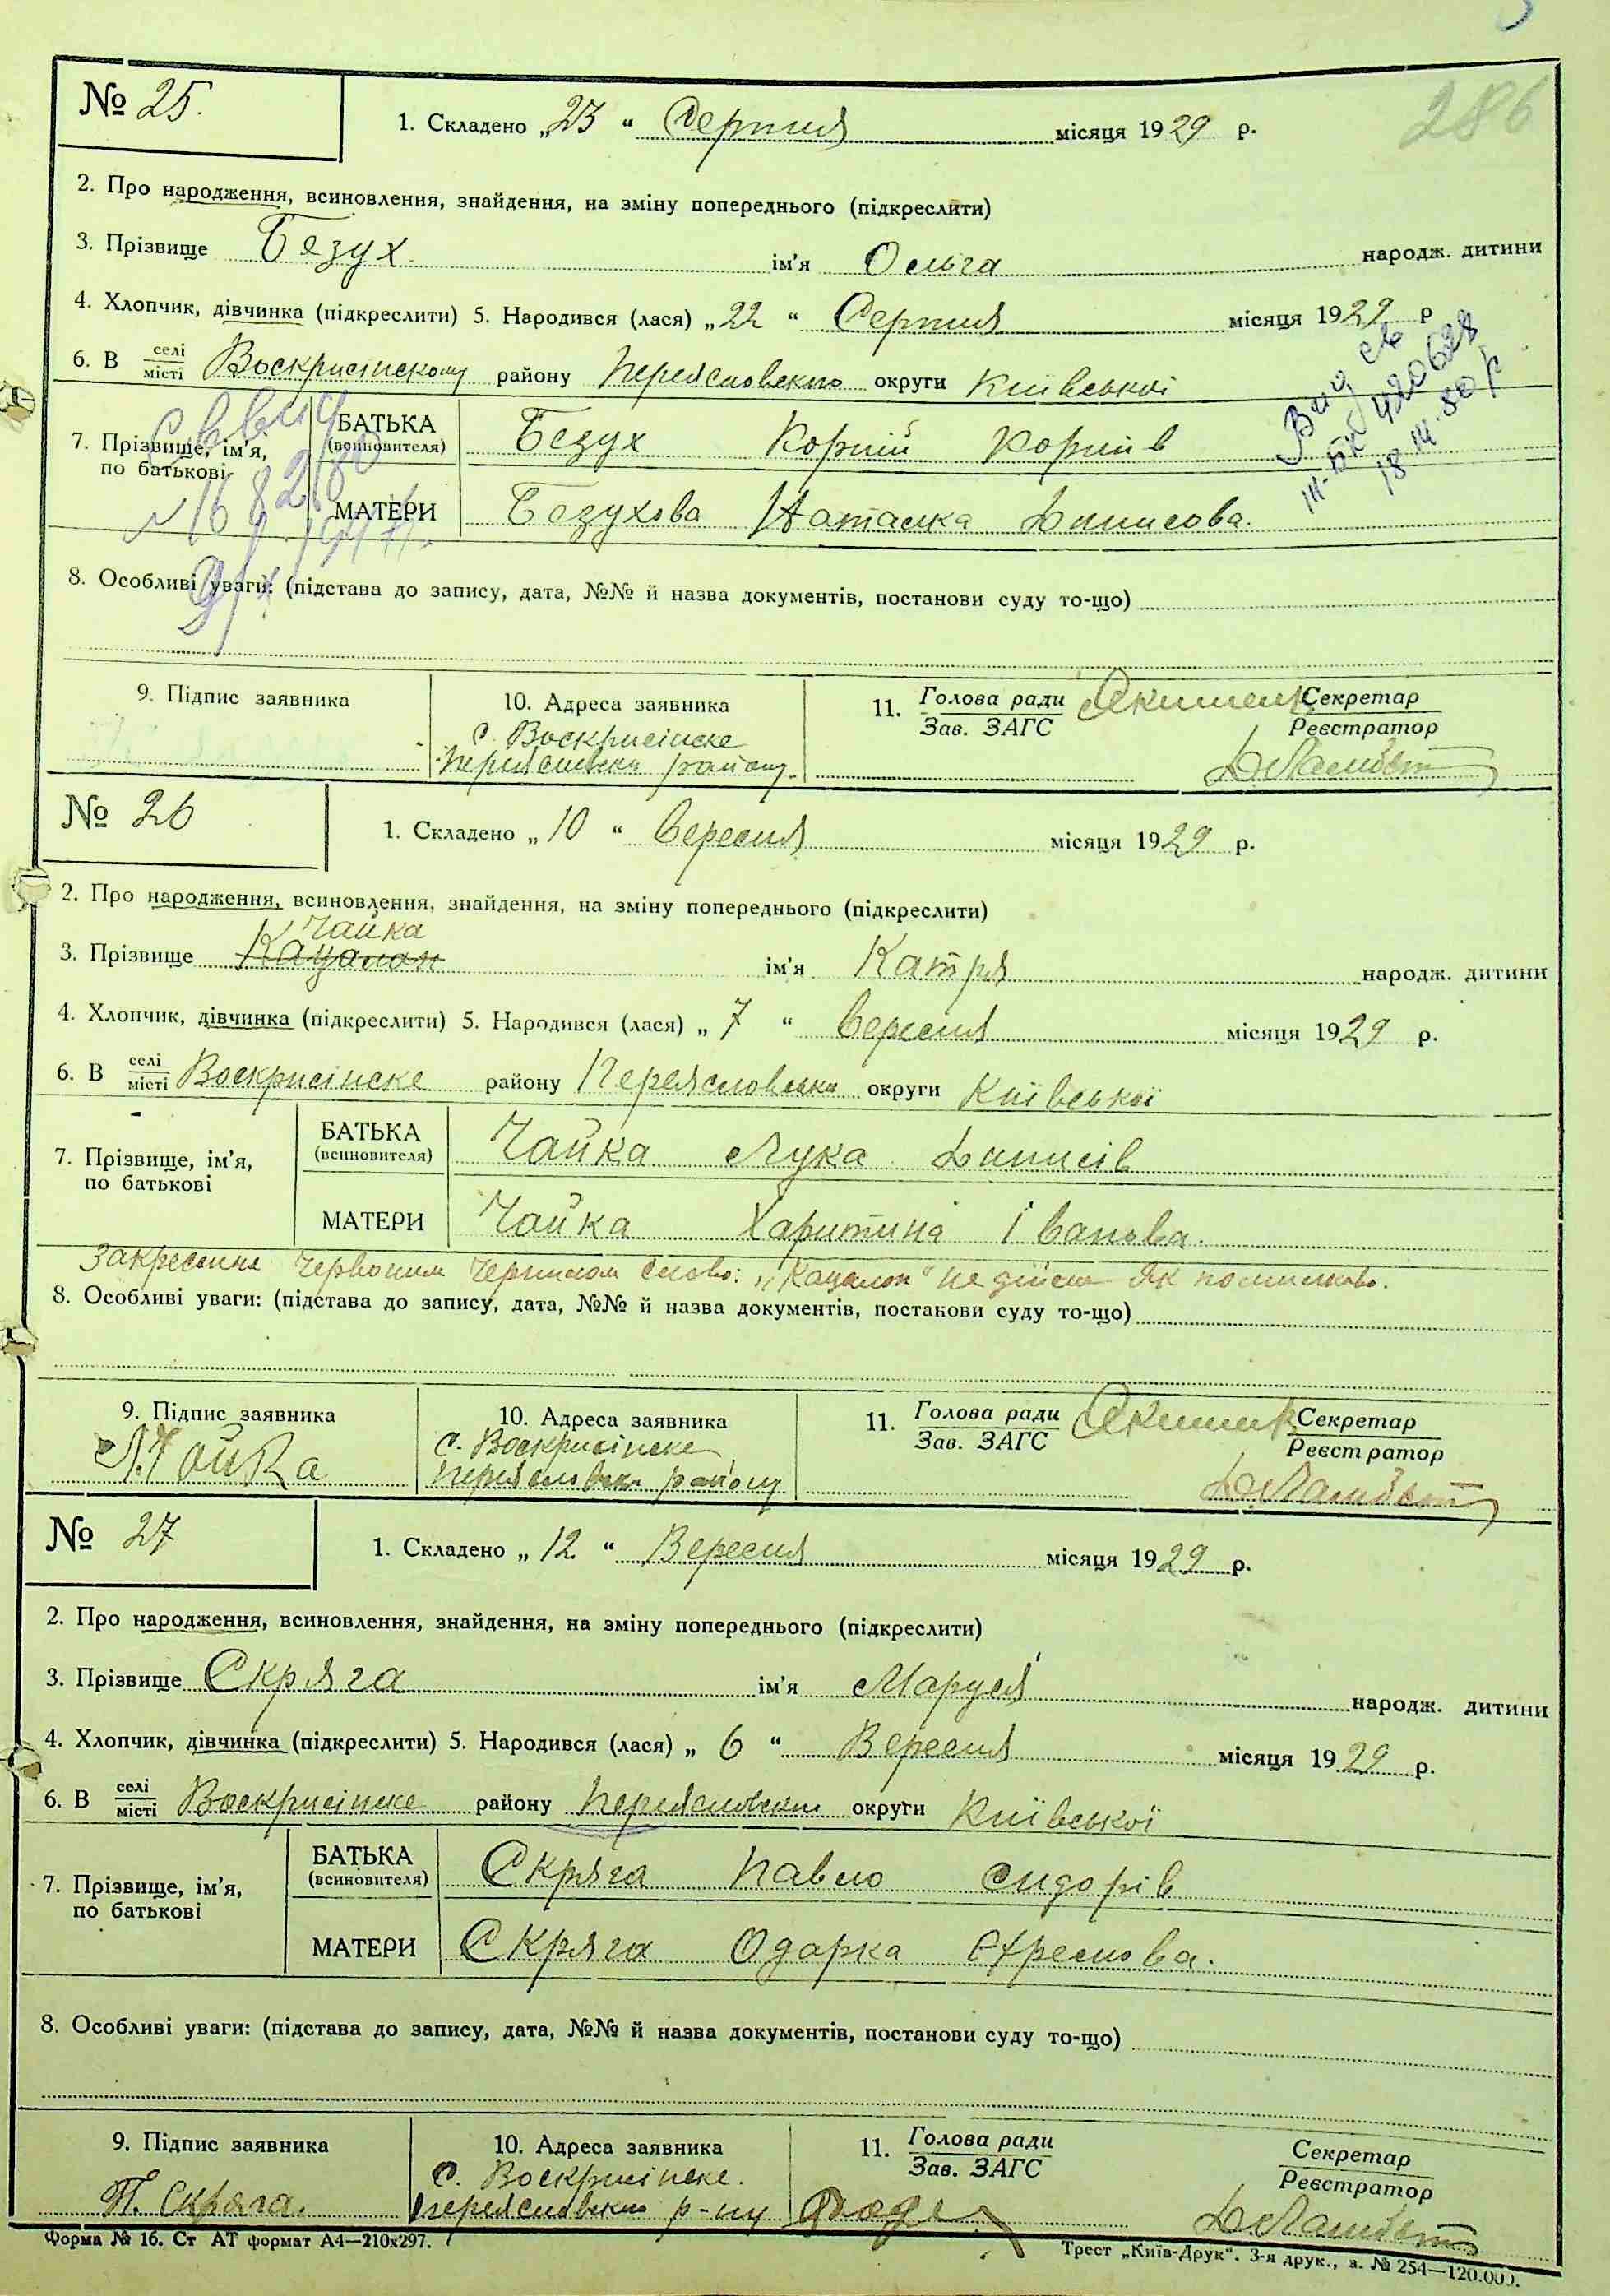 286
№ 25.
1. Складено „23“ Серпня місяця 1929 р.
2. Про народження, всиновлення, знайдення, на зміну попереднього (підкреслити)
3. Прізвище Безух ім'я Ольга народж. дитини
4. Хлопчик, дівчинка (підкреслити) 5. Народився (лася) „22“ Серпня місяця 1929 р
6. В селі місті Воскрисінскому району Переясловского округи Київської
7. Прізвище, ім'я, по батькові
БАТЬКА (всиновителя) Безух Корній Корніїв
МАТЕРИ Безухова Наталка Данисова.
Вид св
III-БК 420628
18.IV.80 р
8. Особливі уваги: (підстава до запису, дата, №№ й назва документів, постанови суду то-що)
9. Підпис заявника
10. Адреса заявника
с. Воскрисінске
Переясловськ району.
11. Голова ради
Зав. ЗАГС
Секретар
Реєстратор
№ 26
1. Складено „10“ Вересня місяця 1929 р.
2. Про народження, всиновлення, знайдення, на зміну попереднього (підкреслити)
Чайка
3. Прізвище Кацапон ім'я Катря народж. дитини
4. Хлопчик, дівчинка (підкреслити) 5. Народився (лася) „7“ Вересня місяця 1929 р.
6. В селі місті Воскрисінске району Переясловськи округи Київської
7. Прізвище, ім'я, по батькові
БАТЬКА (всиновителя) Чайка Лука Данисів
МАТЕРИ Чайка Харитина Іванова.
Закреслене Червоним Чернилом слово: „Кацапон“ не дійсне як помилково.
8. Особливі уваги: (підстава до запису, дата, №№ й назва документів, постанови суду то-що)
9. Підпис заявника
Л.Чайка
10. Адреса заявника
с. Воскрисінске
Переясловськ району
11. Голова ради
Зав. ЗАГС
Секретар
Реєстратор
№ 27
1. Складено „12.“ Вересня місяця 1929 р.
2. Про народження, всиновлення, знайдення, на зміну попереднього (підкреслити)
3. Прізвище Скряга ім'я Маруся народж. дитини
4. Хлопчик, дівчинка (підкреслити) 5. Народився (лася) „6“ Вересня місяця 1929 р.
6. В селі місті Воскрисінске району Переясловском округи Київської
7. Прізвище, ім'я, по батькові
БАТЬКА (всиновителя) Скряга Павло Сидорів
МАТЕРИ Скряга Одарка
8. Особливі уваги: (підстава до запису, дата, №№ й назва документів, постанови суду то-що)
9. Підпис заявника
П. Скряга.
10. Адреса заявника
с. Воскрисінске.
Переясловского р-ну
11. Голова ради
Зав. ЗАГС
Секретар
Реєстратор
Форма № 16. Ст АТ формат А4—210х297.
Трест „Київ-Друк“. 3-я друк., з. № 254—120.000.